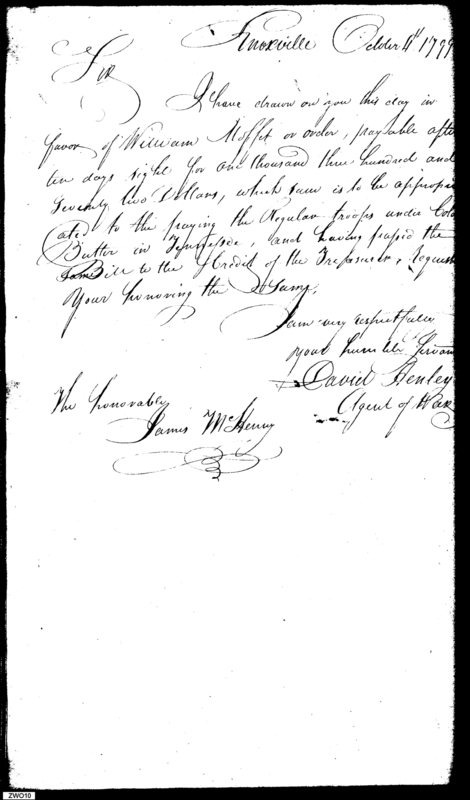 Knoxville October 4th 1799
Sir
I have drawn on you this day in
favor of William Moffet or order, payable after
ten days sight for one thousand three hundred and
seventy two Dollars, which sum is to be appropri
ated to the paying the Regular troops under Colo
Butler in Tennessee, and having passed the
Bill to the Credit of the Treasurer, request
Your honoring the Same,
I am very respectfully
your humble Servant
David Henley
Agent of War
The honorable
James McHenry
ZWO10